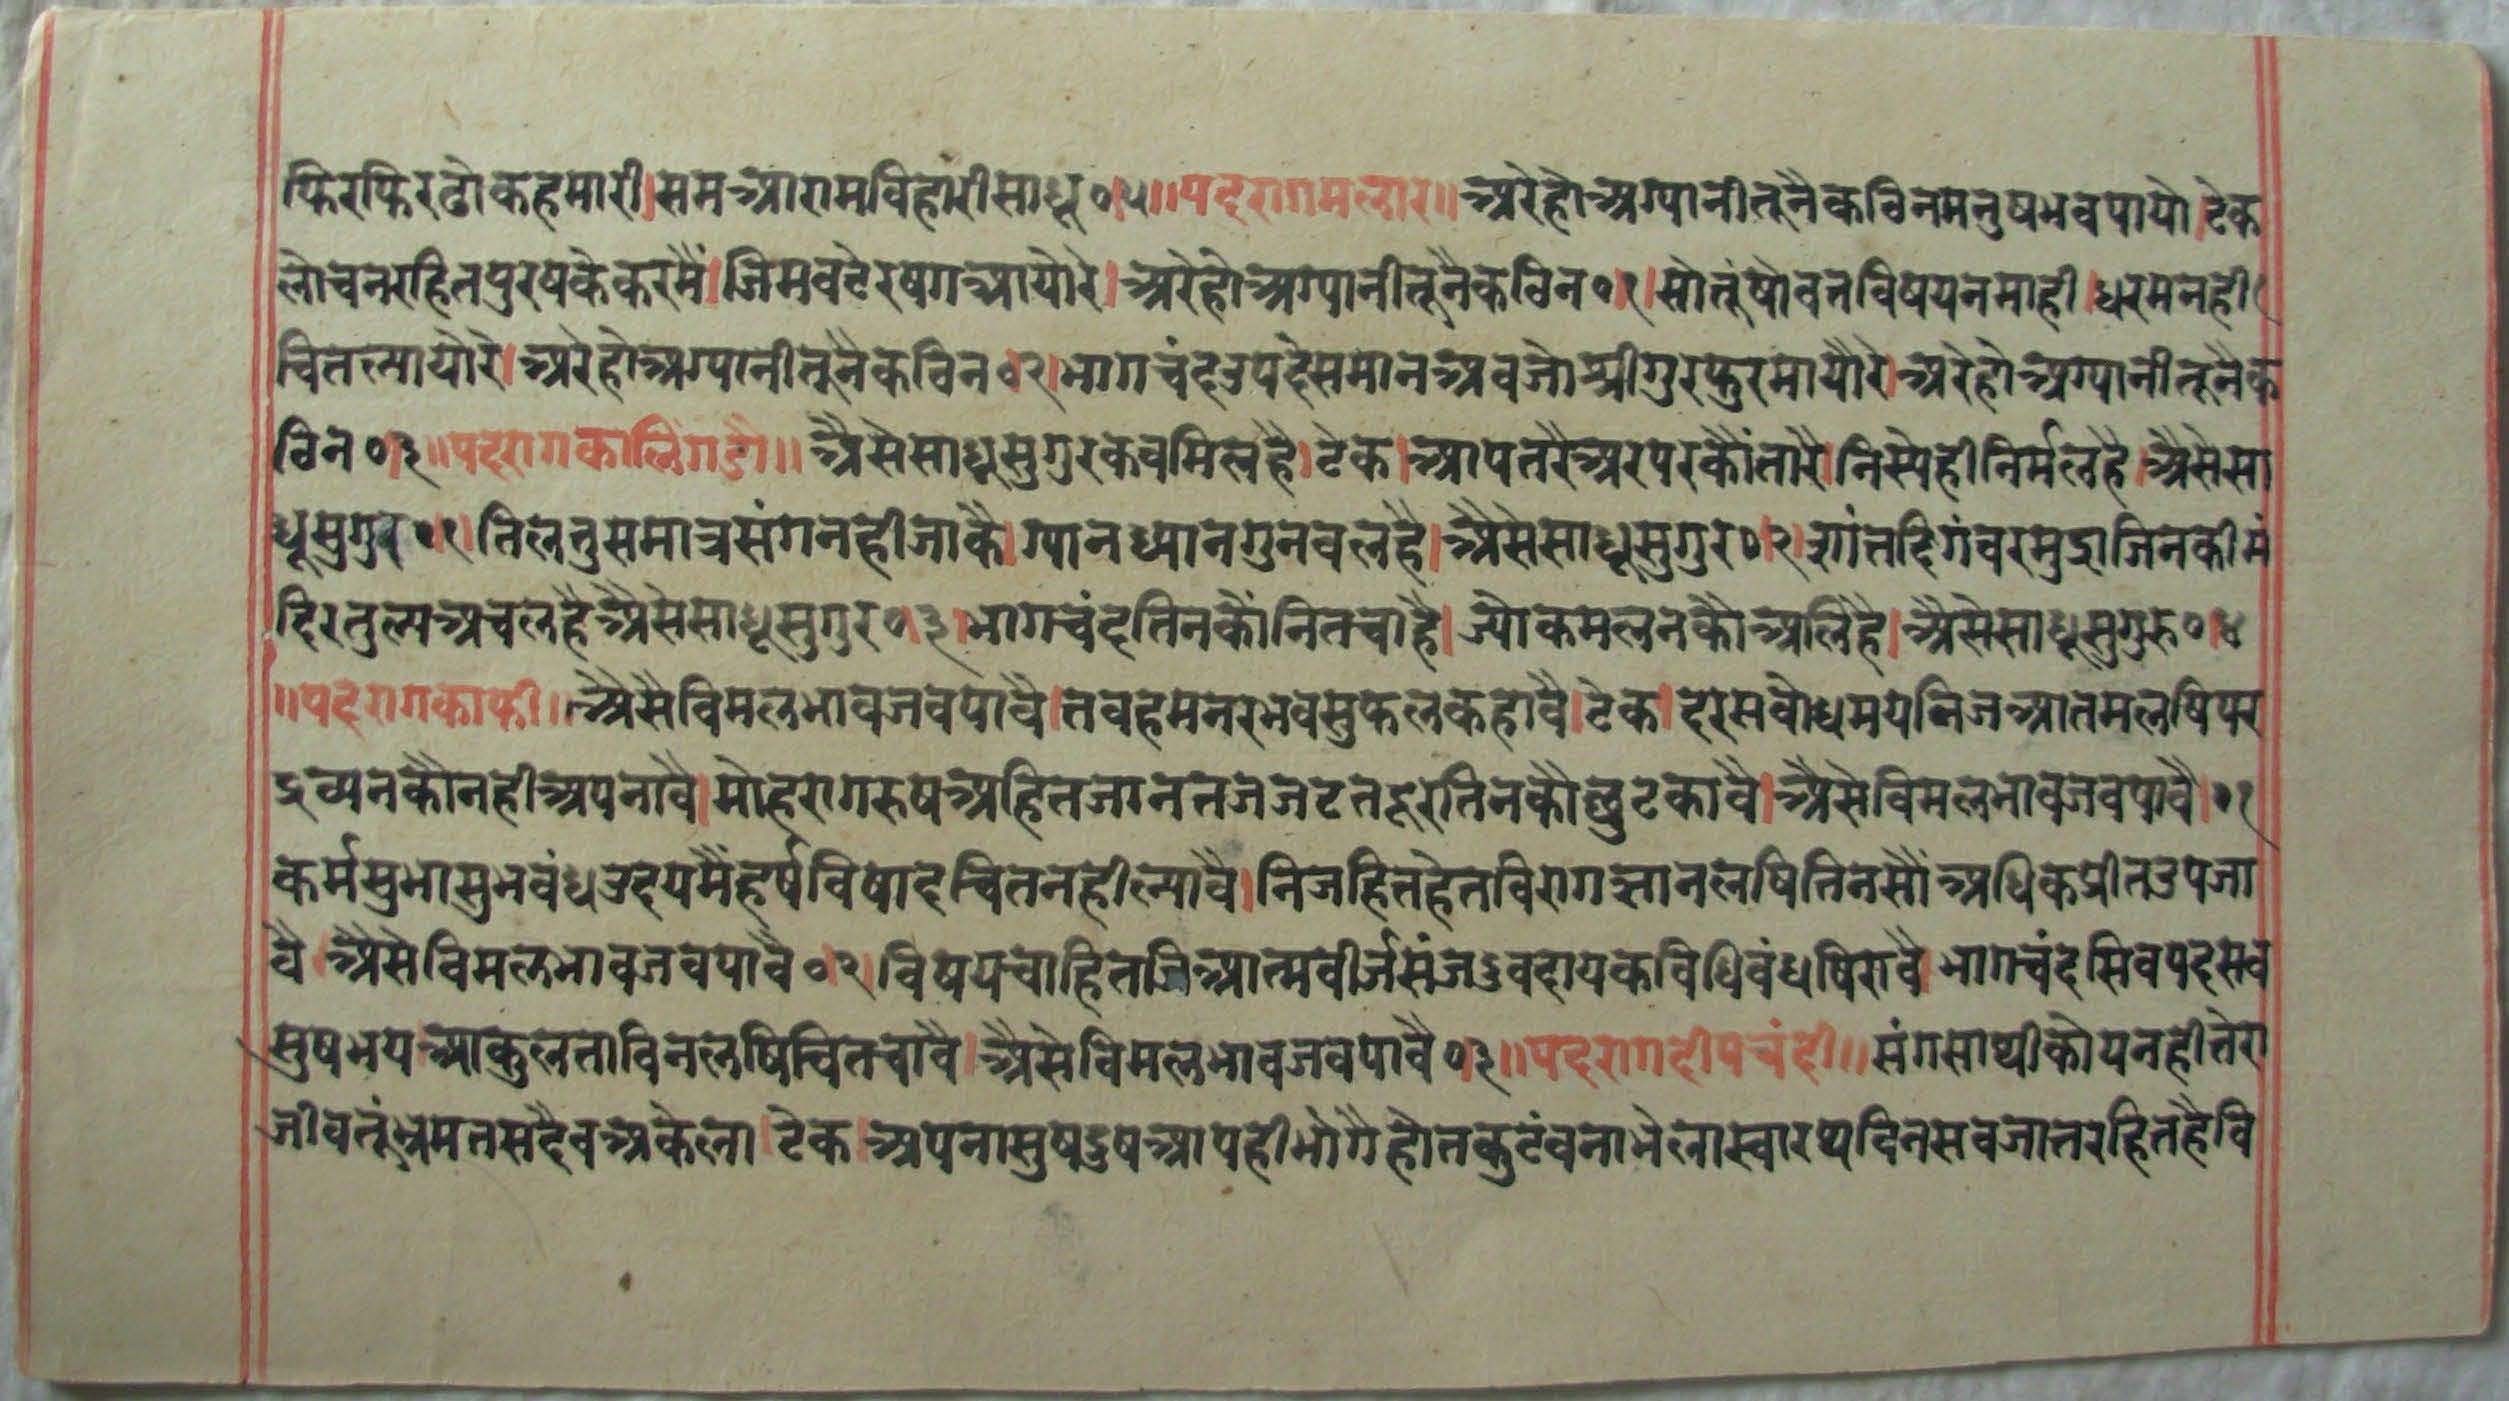 फिरफिरढोकहमारी।समआरामविहारीसाधू०।५॥पदरागमलार॥अरेहोअग्यानीतूनैकविनमनुषभवपायो।टेक
लोचनरहितपुरषकेकरमैं।जिमवटेरषगआयोरे।अरेहोअग्यानीतूनैकविन०।१।सोतूंषोवतविषयनमाही।धरमनही
चितल्यायोरे।अरेहोअग्यानीतूनैकविन०।२।भागचंदउपदेसमानअवजोश्रीगुरफुरमायौरे।अरेहोअग्यानीतूनैक
विन०।३॥पदरागकालिंगडौ॥अैसेसाधूसुगुरकवमिलहै।टेक।आपतरैअरपरकौंतारै।निस्पेहीनिर्मलहै।अैसेसा
धूसुगुर०।१।तिलतुसमात्रसंगनहीजाकै।ग्यानध्यानगुनवलहै।अैसेसाधूसुगुर०।२।शांतदिगंवरमुद्राजिनकीमं
दिरतुल्यअचलहैअैसेसाधूसुगुर०।३।भागचंदतिनकौंनितचाहै।ज्योकमलनकौअलिहै।अैसेसाधूसुगुरु०।४
॥पदरागकाफी॥अैसैविमलभावजवपावै।तवहमनरभवसुफलकहावै।टेक।दरसवोधमयनिजआतमलषिपर
द्रव्यनकौनहीअपनावै।मोहरागरुषअहितजानतजजटतदूरतिनकौछुटकावै।अैसेविमलभावजवपावै।०१
कर्मसुभासुभवंधउदयमैंहर्षविषादचितनहीत्यावै।निजहितहेतविरागज्ञानलषितिनसौंअधिकप्रीतउपजा
वै।अैसेविमलभावजवपावै०।२।विषयचाहितजिआत्मवीर्जसंजदुवदायकविधिवंधषिरावै।भागचंदसिवपदसव
सुषभय।आकुलताविनलषिचितचावै।अैसेविमलभावजवपावै०।३॥पदरागदीपचंदी॥संगसाथीकोयनहीतेरा
जीवतूंभ्रमतसदैवअकेला।टेक।अपनासुषदुषआपहीभोगैहोतकुटंवनाभेलास्वारथविनसवजातरहितहैवि